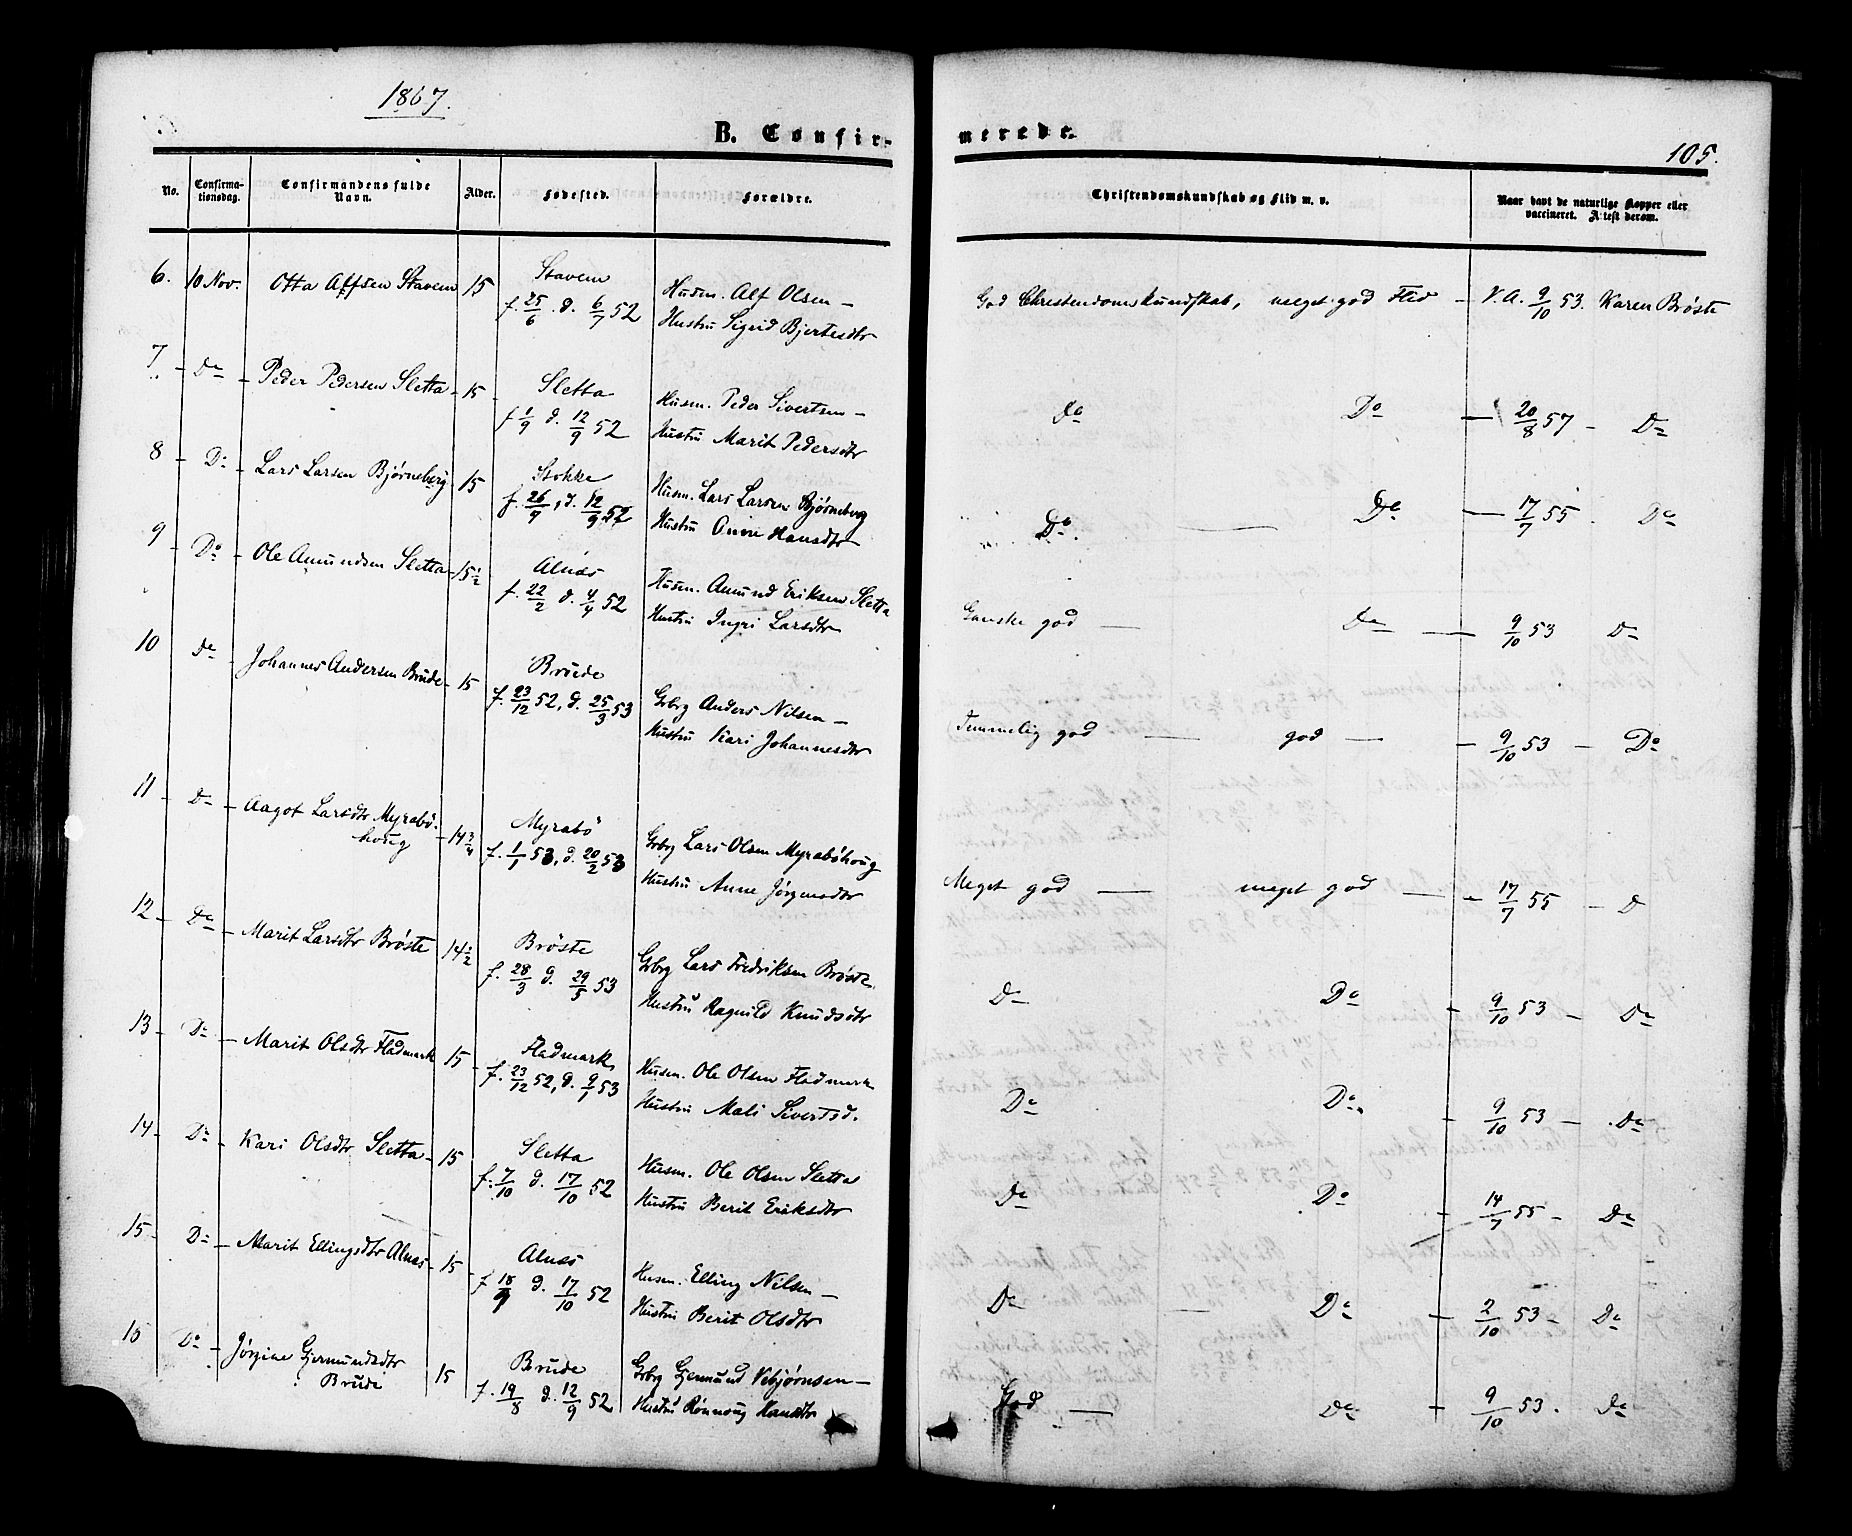 1867.
B. Confir-
merede.
105.
No.
Confirma-
tionsdag.
Confirmandens fulde
Navn.
Alder.
Fødested.
Forældre.
Christendomskundskab og Flid m. v.
Naar havt de naturlige Kopper eller
vaccineret. Attest derom.
6. 10 Nov. Otta Alfsen Stavem 15 Stavem Husm. Alf Olsen –
f. 25/6. d. 6/7 52 Hustru Sigrid Bjertesdtr
God Christendomskundskab, meget god Flid – V.A. 9/10 53. Karen Brøste
7 – Do – Peder Pedersen Sletta – 15 – Sletta Husm. Peder Sivertsen –
f 1/9 d. 12/9 52 Hustru Marit Pedersdtr
Do Do – 20/8 57 – Do
8 – Do – Lars Larsen Bjørneberg 15 Stokke Husm. Lars Larsen Bjørneberg
f. 26/7, d. 12/9 52 Hustru Anne Hansdtr
Do. – Do – 17/7 55. Do
9 – Do – Ole Amundsen Sletta – 15 1/2 Alnæs Husm. Amund Eriksen Sletta
f. 22/2 d. 4/4 52 Hustru Ingri Larsdtr
Ganske god – Do – 9/10 53 Do
10 Do – Johannes Andersen Brude – 15 Brude
f. 23/12 52, d. 25/3 53 Grbrg Anders Nilsen –
Hustru Kari Johannesdtr
Temmelig god – god – – 9/10 53 – Do
11 – Do – Aagot Larsdtr Myrabö-
houg – 14 3/4 Myrabö Grbrg Lars Olsen Myraböhoug
f. 1/1 53, d. 20/2 53 Hustru Anne Jørgensdtr
Meget god – meget god – – 17/7 55 – D
12 – Do – Marit Larsdtr Bröste 14 1/2 Bröste Grbrg Lars Fredriksen Bröste
f. 28/3 d. 29/5 53 Hustru Ragnild Knudsdtr
Do Do – 9/10 53 – Do
13 – Do – Marit Olsdtr Fladmark 15 – Fladmark Husm. Ole Olsen Fladmark
f. 23/12 52, d. 9/1 53 Hustru Mali Sivertsd.
Do Do. – 9/10 53 – Do
14 – Do – Kari Olsdtr Sletta – 15 Sletta Husm. Ole Olsen Sletta
f. 7/10 d. 17/10 52 Hustru Berit Eriksdtr
Do Do – 14/7 55 – Do
15 – Do – Marit Ellingsdtr Alnæs – 15 – Alnæs Husm. Elling Nilsen –
f 18/9 d. 17/10 52 Hustru Berit Olsdtr
Do – Do – 2/10 53 – Do
16 Do – Jørgine Gjermundsdtr
Brude 15 Brude Grbrg Gjermund Vebjørnsen –
f. 19/8 d. 12/9 52 Hustru Rønnoug Hansdtr
God – Do – 9/10 53. Do